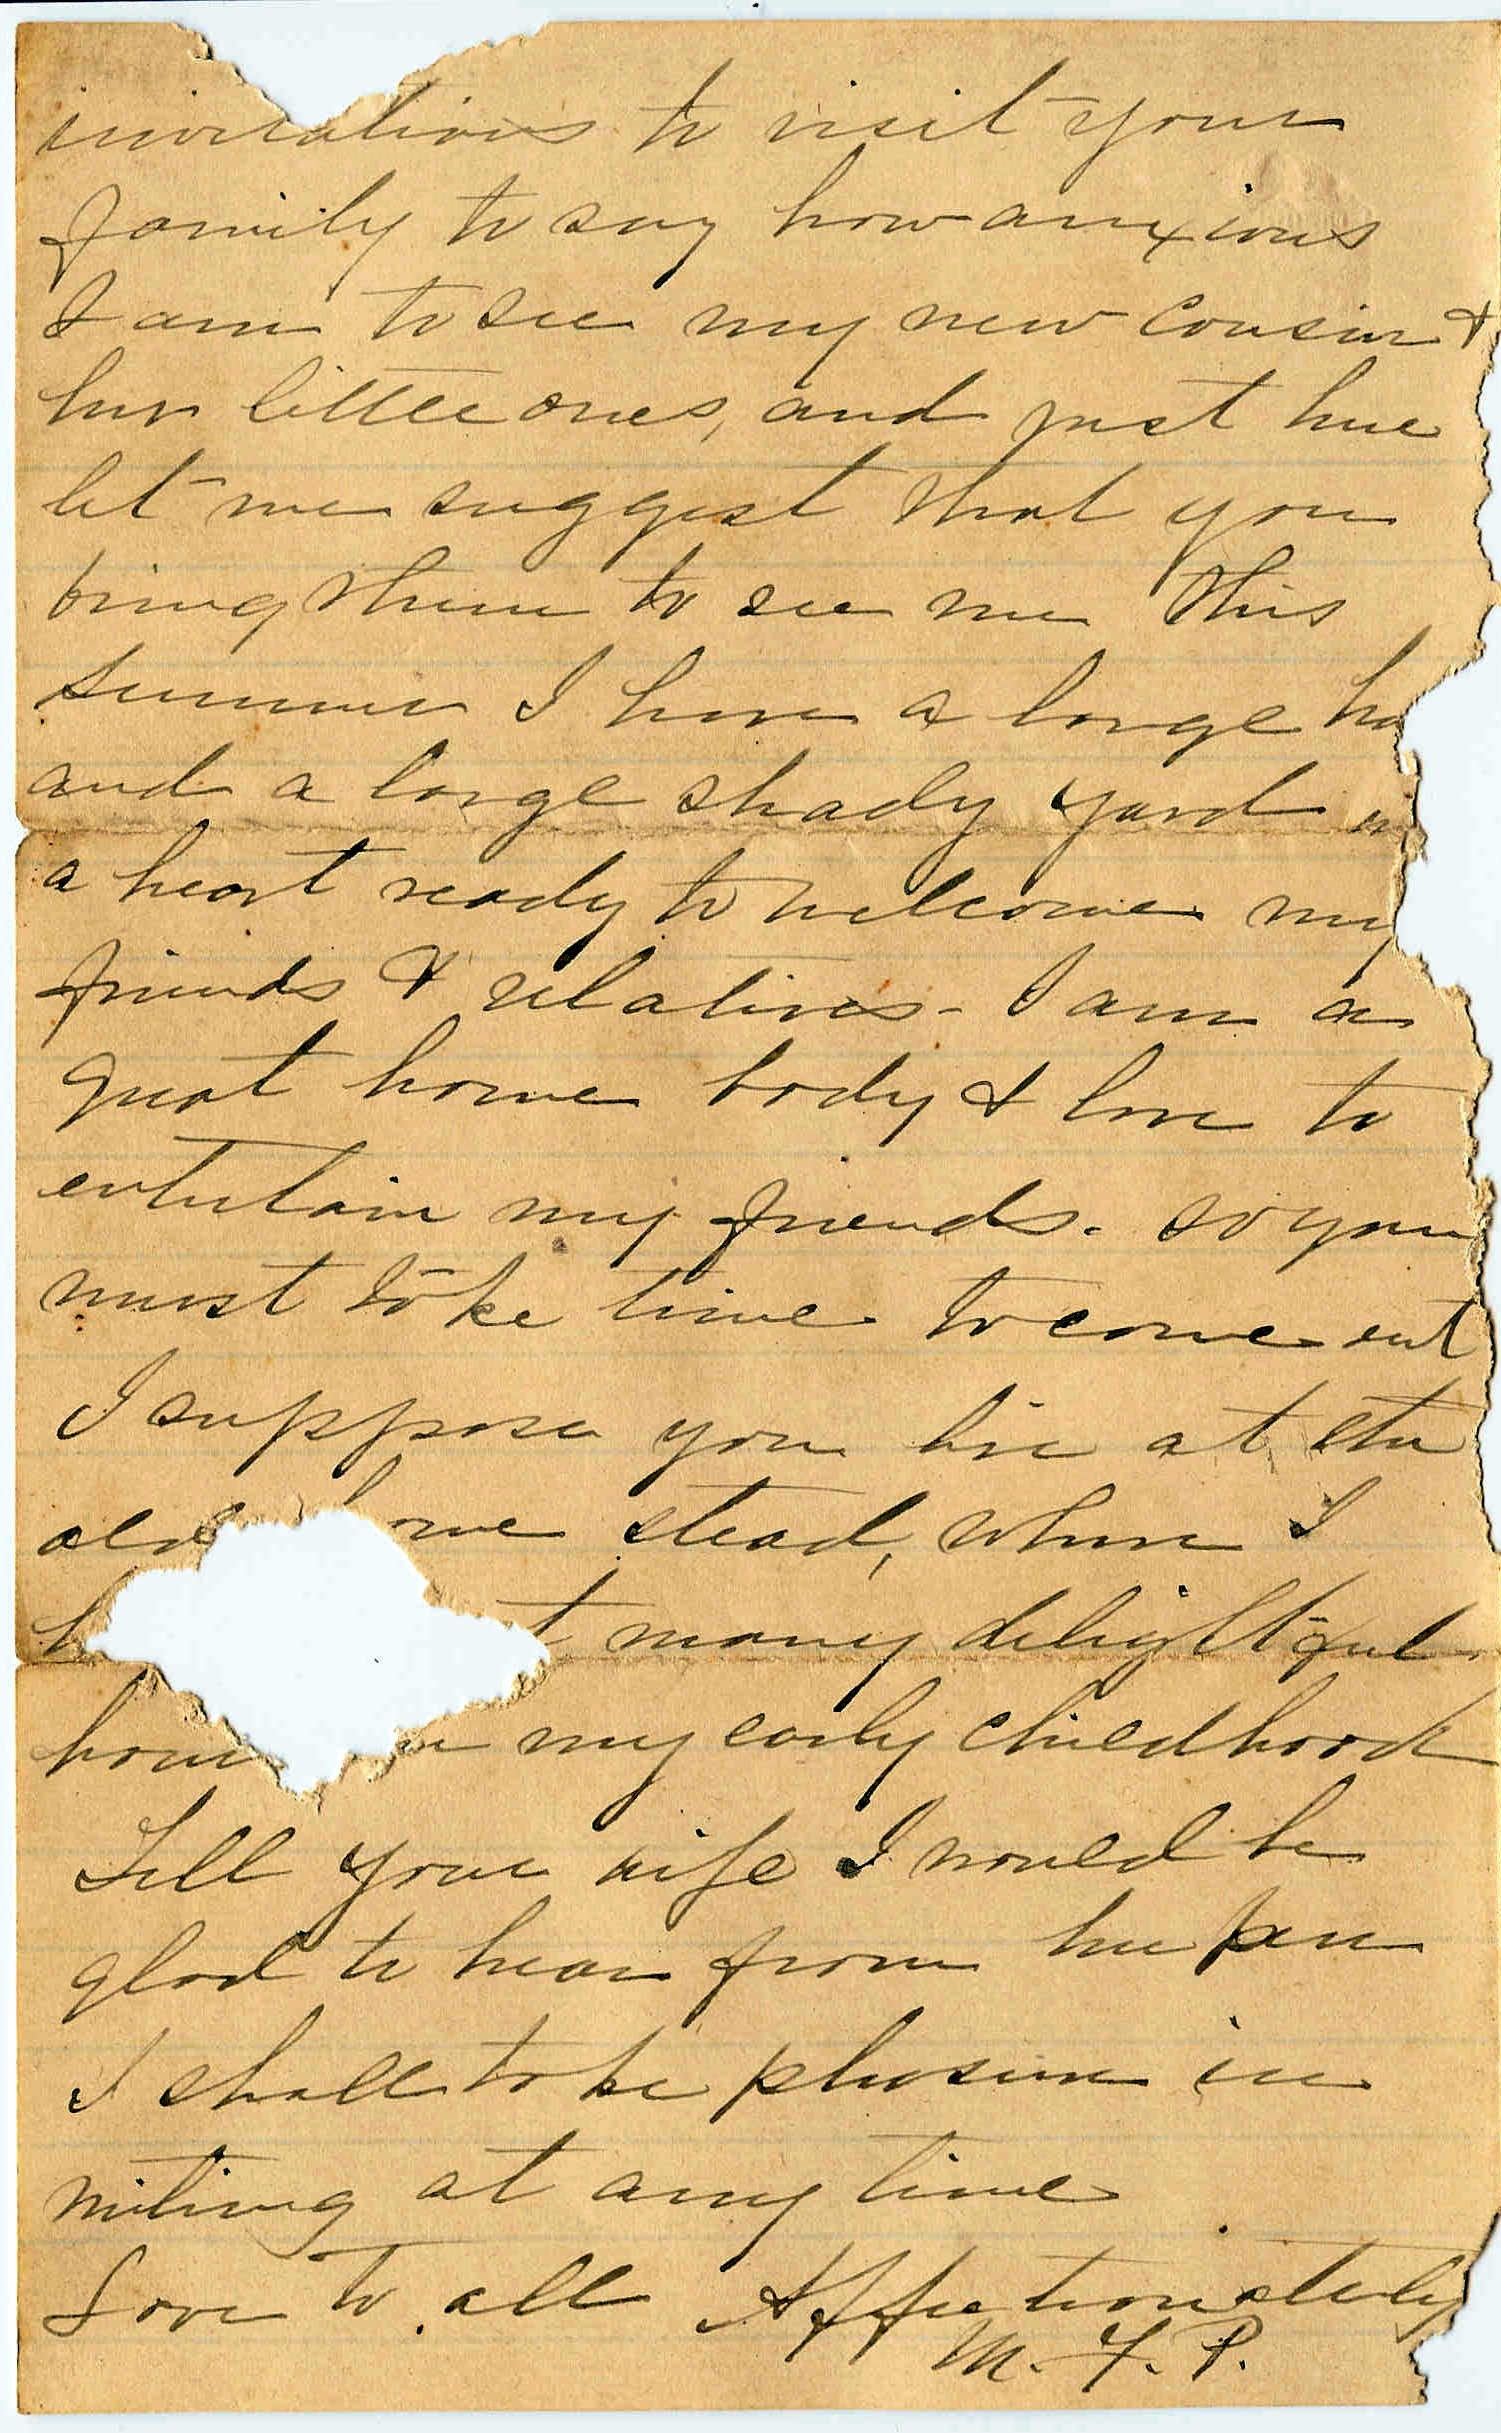 invitations to visit your
family to say how anxious
I am to see my new cousin &
her little ones, and just here
let me suggest that you
bring them to see me this
summer I have a large ho
and a large shady yard
a heart ready to welcome my
friends & relatives - I am a
great home body & love to
entertain my friends. so you
must take time to come out
I suppose you live at the
old home stead, where I
h t many delightful
hours in my early childhood
Tell your wife I would be
glad to hear from her pen
I shall take pleasure in
writing at any time
Love to all Affectionately
M. F. P.